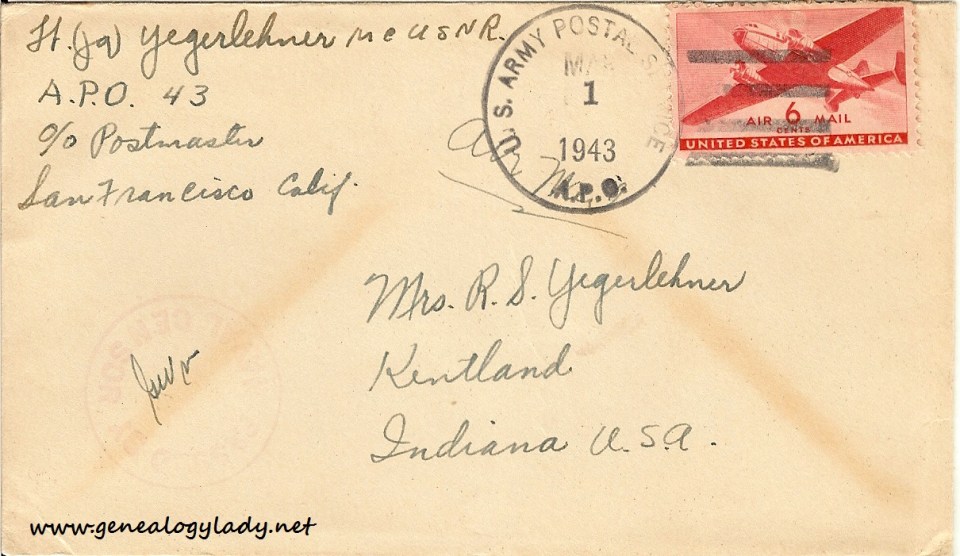 Lt. (jg) Yegerlehner MC USNR.
A.P.O. 43
c/o Postmaster
San Francisco Calif.
U.S. ARMY POSTAL SERVICE
MAR
1
1943
A.P.O.
AIR 6 MAIL
CENTS
UNITED STATES OF AMERICA
Air Mail
Mrs. R. S. Yegerlehner
Kentland
Indiana U.S.A.
CENSOR
www.genealogylady.net